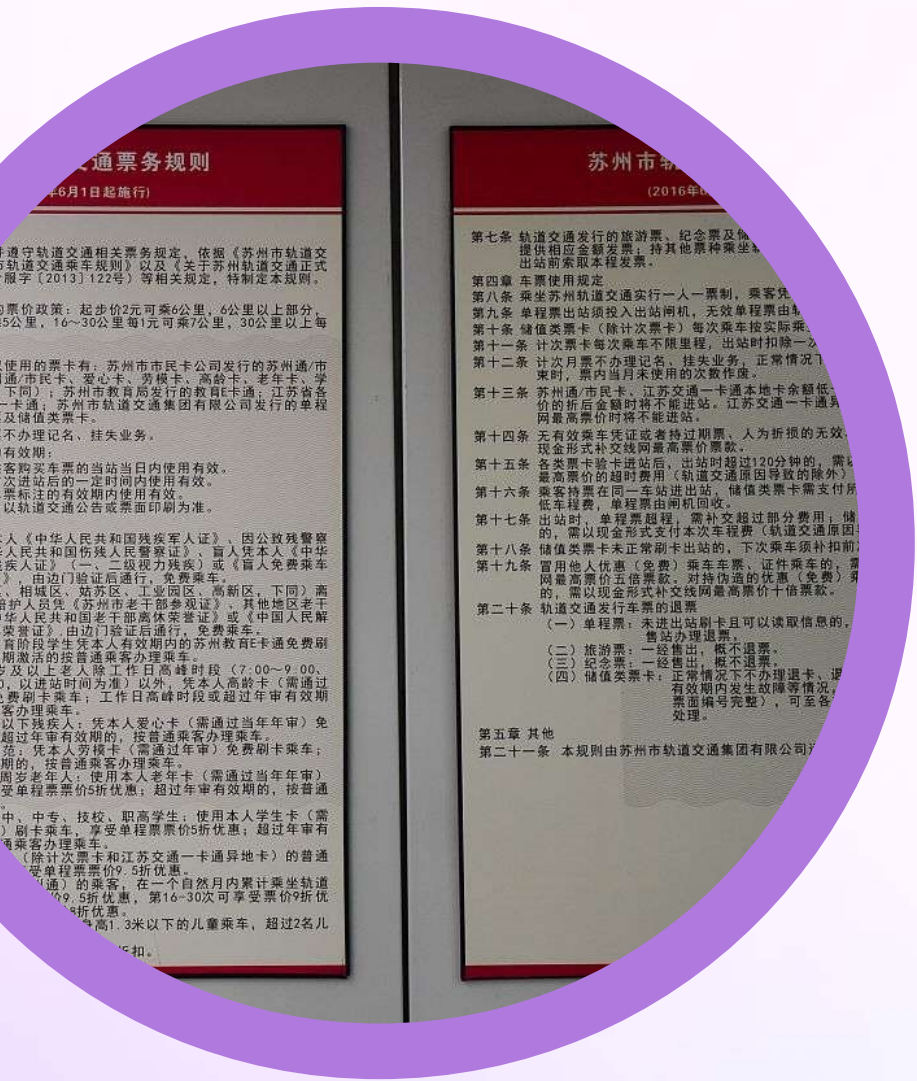 通票务规则
6月1日起施行)
遵守轨道交通相关票务规定，依据《苏州市轨道交
市轨道交通乘车规则》以及《关于苏州轨道交通正式
服字〔2013〕122号）等相关规定，特制定本规则。
票价政策：起步价2元可乘6公里，6公里以上部分，
5公里，16～30公里每1元可乘7公里，30公里以上每
使用的票卡有：苏州市市民卡公司发行的苏州通/市
通/市民卡、爱心卡、劳模卡、高龄卡、老年卡、学
下同）；苏州市教育局发行的教育E卡通；江苏省各
一卡通；苏州市轨道交通集团有限公司发行的单程
及储值类票卡。
不办理记名、挂失业务。
有效期：
客购买车票的当站当日内使用有效。
次进站后的一定时间内使用有效。
票标注的有效期内使用有效。
以轨道交通公告或票面印刷为准。
人《中华人民共和国残疾军人证》、因公致残警察
人民共和国伤残人民警察证》、盲人凭本人《中华
疾人证》（一、二级视力残疾）或《盲人免费乘车
》，由边门验证后通行，免费乘车。
、相城区、姑苏区、工业园区、高新区，下同）离
陪护人员凭《苏州市老干部参观证》、其他地区老干
华人民共和国老干部离休荣誉证》或《中国人民解
荣誉证》，由边门验证后通行，免费乘车。
育阶段学生凭本人有效期内的苏州教育E卡通免费刷
期激活的按普通乘客办理乘车。
岁及以上老人除工作日高峰时段（7:00～9:00、
，以进站时间为准）以外，凭本人高龄卡（需通过
免费刷卡乘车；工作日高峰时段或超过年审有效期
客办理乘车。
以下残疾人：凭本人爱心卡（需通过当年年审）免
超过年审有效期的，按普通乘客办理乘车。
范：凭本人劳模卡（需通过年审）免费刷卡乘车；
期的，按普通乘客办理乘车。
周岁老年人：使用本人老年卡（需通过当年年审）
受单程票票价5折优惠；超过年审有效期的，按普通
。
中、中专、技校、职高学生：使用本人学生卡（需
）刷卡乘车，享受单程票票价5折优惠；超过年审有
通乘客办理乘车。
（除计次票卡和江苏交通一卡通异地卡）的普通
受单程票票价9.5折优惠。
通）的乘客，在一个自然月内累计乘坐轨道
9.5折优惠，第16-30次可享受票价9折优
折优惠。
高1.3米以下的儿童乘车，超过2名儿
折扣。
苏州市轨
(2016年6
第七条 轨道交通发行的旅游票、纪念票及储
提供相应金额发票；持其他票种乘坐轨
出站前索取本程发票。
第四章 车票使用规定
第八条 乘坐苏州轨道交通实行一人一票制，乘客凭
第九条 单程票出站须投入出站闸机，无效单程票由轨
第十条 储值类票卡（除计次票卡）每次乘车按实际乘
第十一条 计次票卡每次乘车不限里程，出站时扣除一次
第十二条 计次月票不办理记名、挂失业务，正常情况下
束时，票内当月未使用的次数作废。
第十三条 苏州通/市民卡、江苏交通一卡通本地卡余额低
价的折后金额时将不能进站。江苏交通一卡通异
网最高票价时将不能进站。
第十四条 无有效乘车凭证或者持过期票、人为折损的无效
现金形式补交线网最高票价票款。
第十五条 各类票卡验卡进站后，出站时超过120分钟的，需以
最高票价的超时费用（轨道交通原因导致的除外）
第十六条 乘客持票在同一车站进出站，储值类票卡需支付所
低车程费，单程票由闸机回收。
第十七条 出站时，单程票超程，需补交超过部分费用；储
的，需以现金形式支付本次车程费（轨道交通原因
第十八条 储值类票卡未正常刷卡出站的，下次乘车须补扣前
第十九条 冒用他人优惠（免费）乘车车票、证件乘车的，需
网最高票价五倍票款。对持伪造的优惠（免费）乘
的，需以现金形式补交线网最高票价十倍票款。
第二十条 轨道交通发行车票的退票
（一）单程票：未进出站刷卡且可以读取信息的，
售站办理退票。
（二）旅游票：一经售出，概不退票。
（三）纪念票：一经售出，概不退票。
（四）储值类票卡：正常情况下不办理退卡、退
有效期内发生故障等情况，
票面编号完整），可至各
处理。
第五章 其他
第二十一条 本规则由苏州市轨道交通集团有限公司